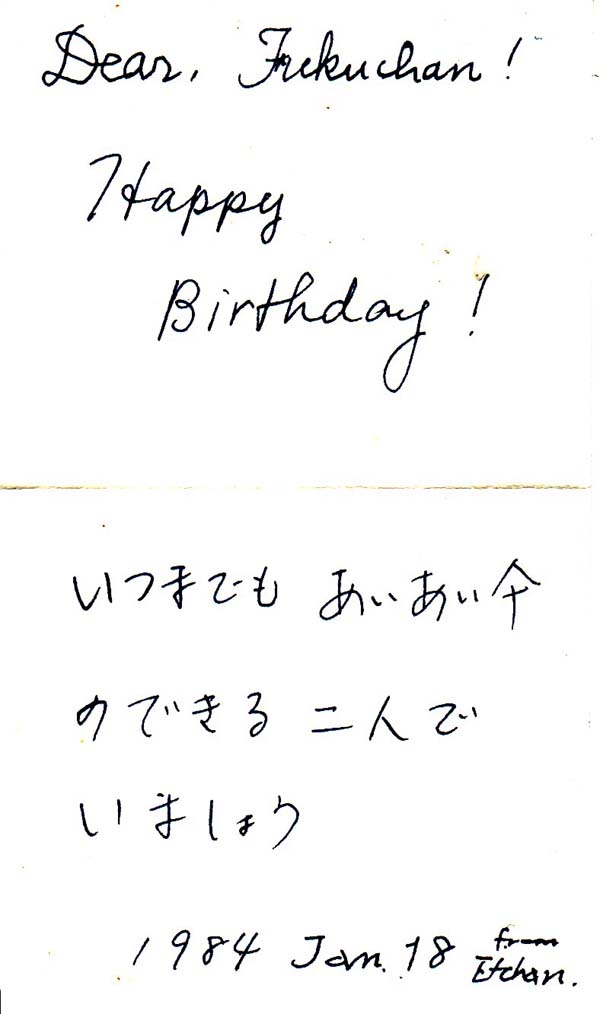 Dear, Fukuchan!
Happy
Birthday!
いつまでも あいあい傘
のできる 二人で
いましょう
1984 Jan. 18 from
Etchan.